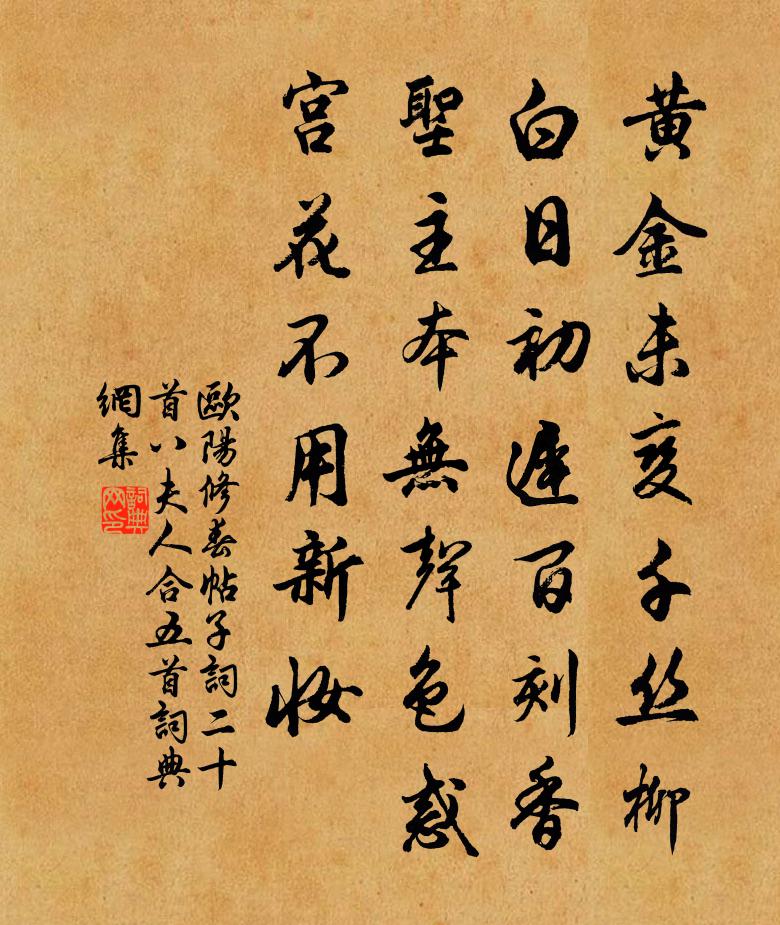 黄金未变千丝柳
白日初遲百刻香
聖主本無聲色惑
宫花不用新妝
歐陽修春帖子詞二十
首八夫人合五首詞典
網集
詞典網印